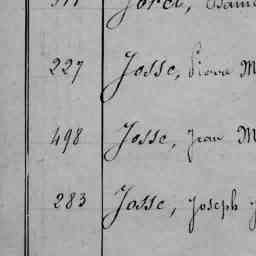 227 Josse, Pierre M
498 Josse, Jean M
283 Josse, Joseph J